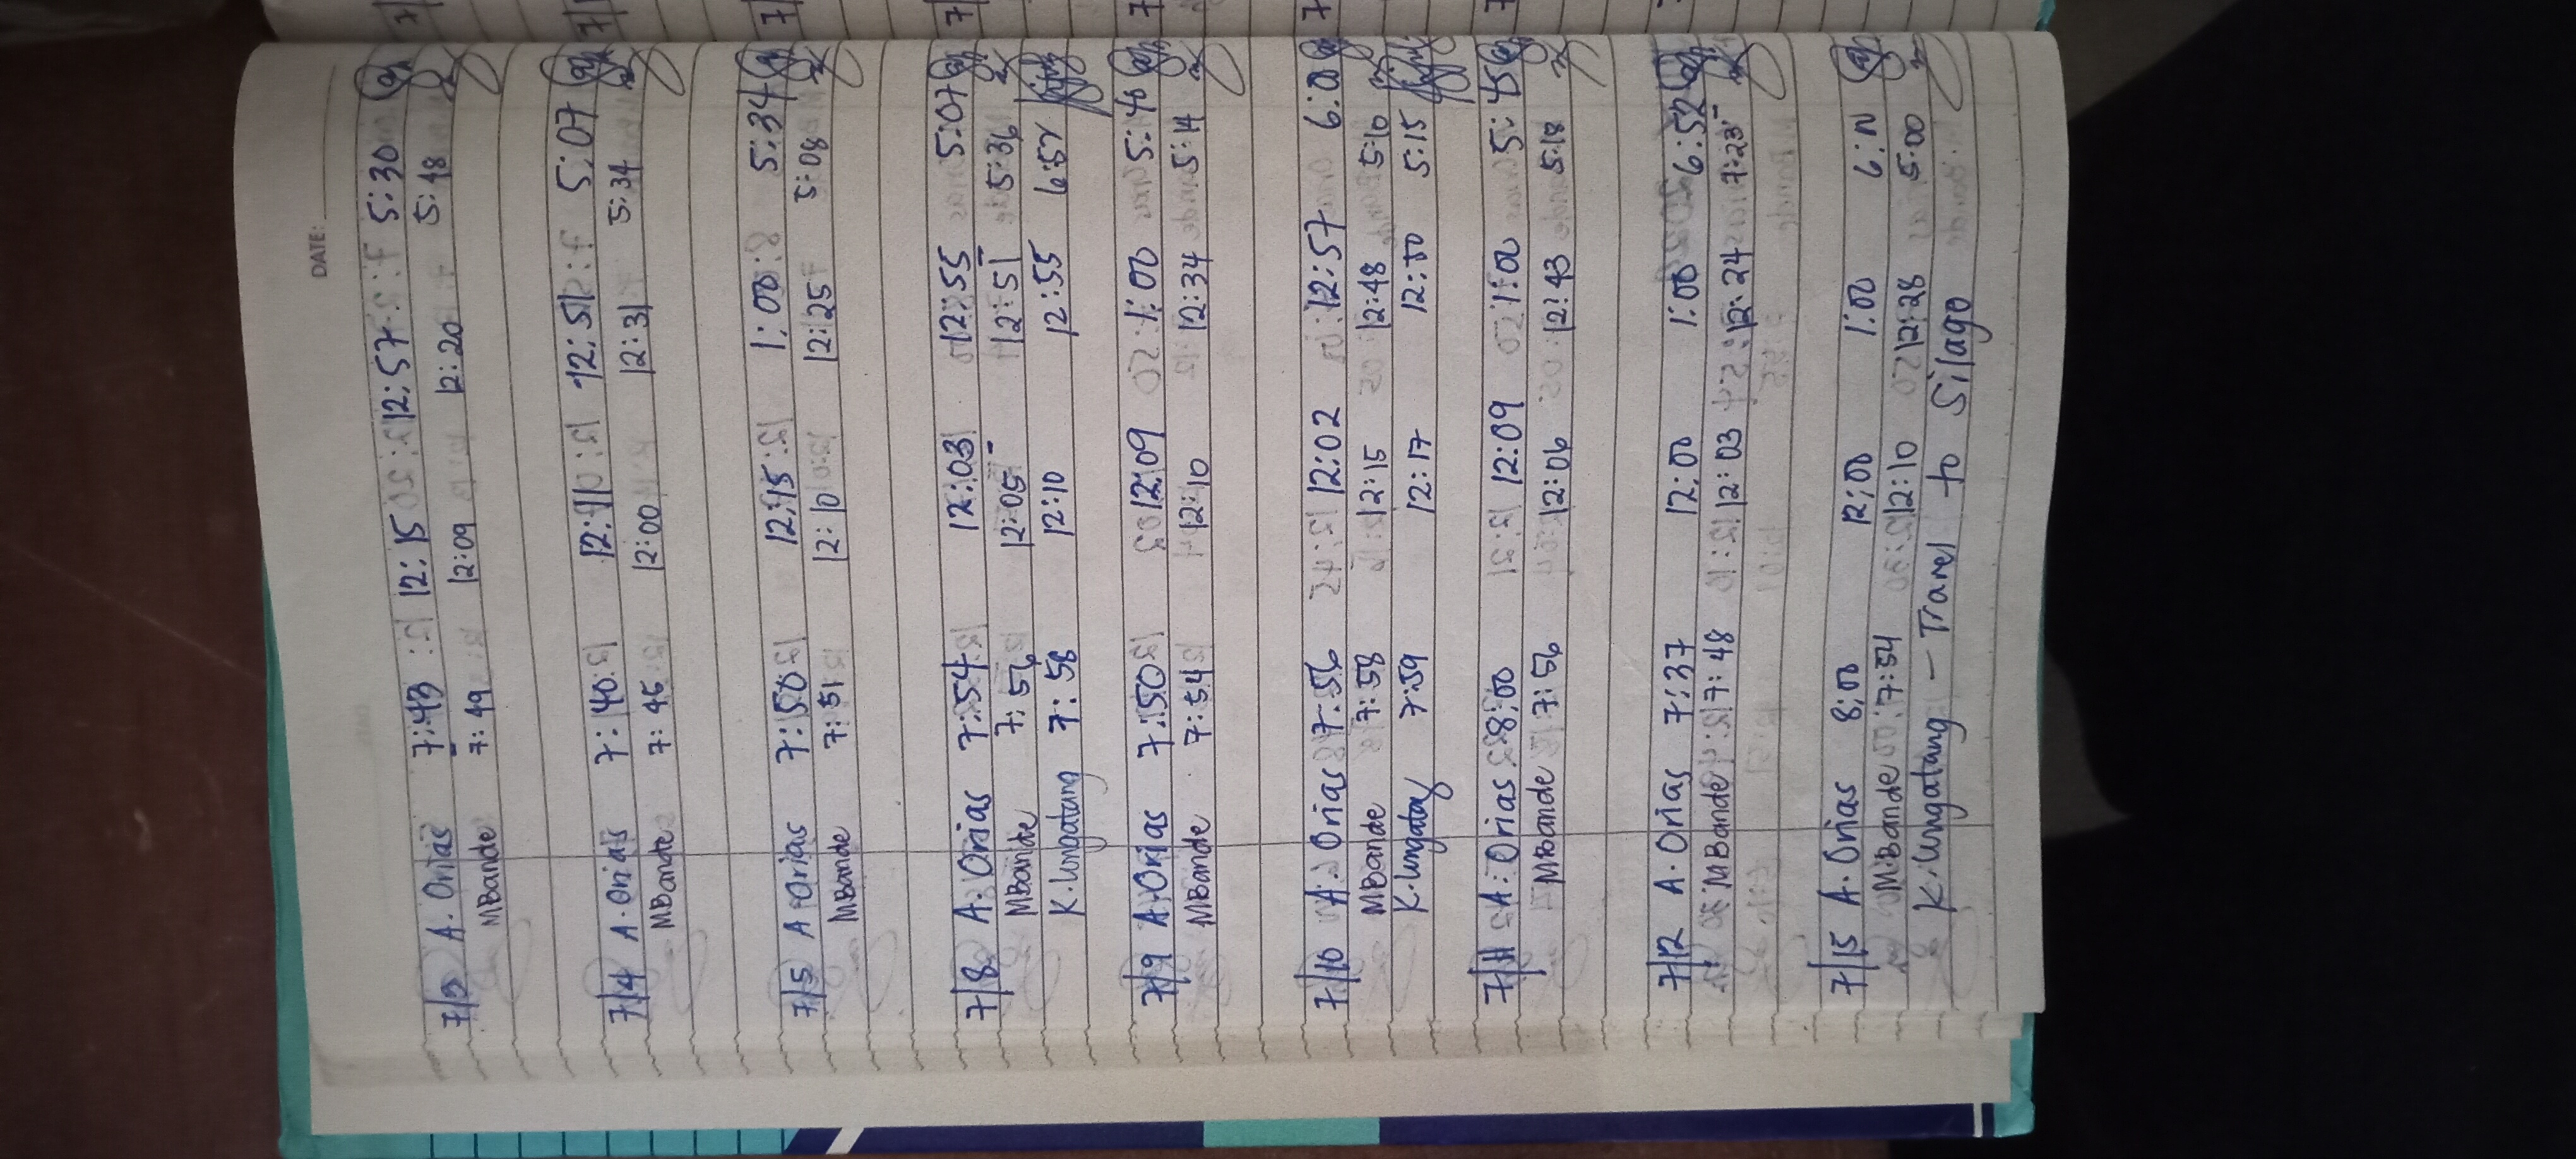 DATE:
7/3 A. Orias 7:43 12:15 12:57 5:30
MBande 7:49 12:09 12:20 5:48
7/4 A. Orias 7:40 12:11 12:51 5:07
MBande 7:45 12:00 12:31 5:34
7/5 A. Orias 7:50 12:15 1:00 5:34
MBande 7:51 12:10 12:25 5:08
7/8 A. Orias 7:54 12:03 12:55 5:07
MBande 7:56 12:05 12:51 5:36
K. Lungatang 7:58 12:10 12:55 6:52
7/9 A. Orias 7:50 12:09 1:00 5:40
MBande 7:54 12:10 12:34 5:14
7/10 A. Orias 7:56 12:02 12:57 6:00
MBande 7:58 12:15 12:48 5:10
K. Lungatang 7:59 12:17 12:50 5:15
7/11 A. Orias 8:00 12:09 1:00 5:45
MBande 7:56 12:06 12:43 5:18
7/12 A. Orias 7:37 12:00 1:00 6:52
MBande 7:48 12:03 12:24 7:23
7/15 A. Orias 8:00 12:00 1:00
MBande 7:54 12:10 12:28 5:00
K. Lungatang - Travel to Silago